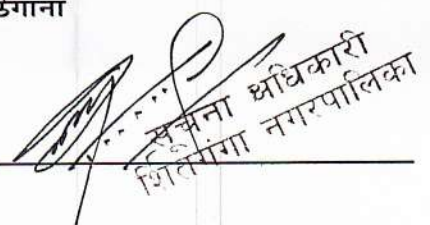 ठेगाना
सूचना अधिकारी
शितगंगा नगरपालिका